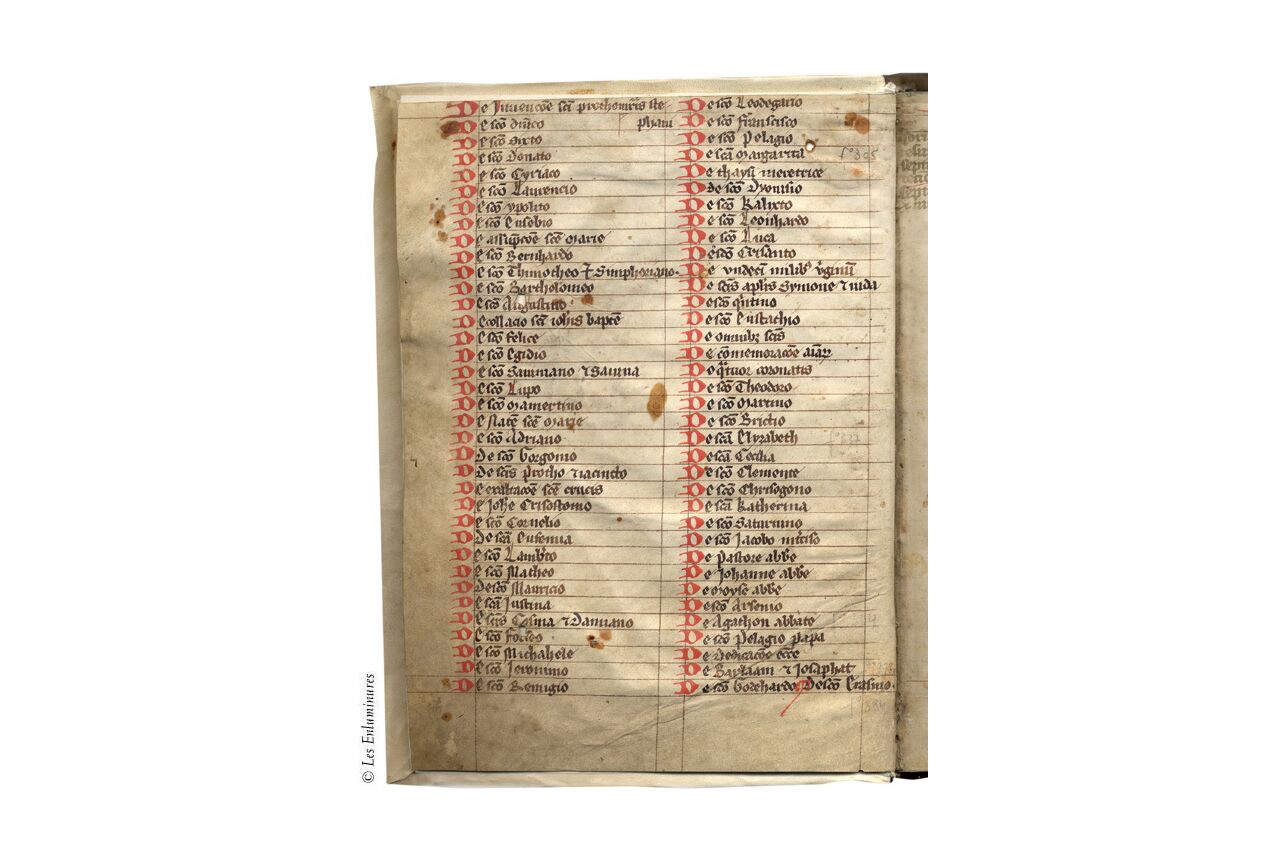 De Inuencōe scī prothomrīs ste
phani
De scō dnīco
De scō Sixto
De scō Donato
De scō Cyriaco
De scō Laurencio
De scō ypolito
De scō Eusebio
De assūpcōe scē marie
De scō Bernhardo
De scō Thimotheo & Simphoriano
De scō Bartholomeo
De scō Augustino
Decollacio scī iohīs baptē
De scō felice
De scō Egidio
De scō Sauiniano & Sauina
De scō Lupo
De scō mamertino
De Natē scē marie
De scō Adriano
De scō Gorgonio
De scīs Protho & iacincto
De exaltacōe scē crucis
De Johē Crisostomo
De scō Cornelio
De scā Eufemia
De scō Lamb'to
De scō Matheo
De scō Mauricio
De scā Justina
De scīs Cosma & Damiano
De scō forseo
De scō Michahele
De scō Jeronimo
De scō Remigio
De scō Leodegario
De scō franscisco
De scō Pelagio
De scā margarita
f° 305
De thaysi meretrice
De scō Dyonisio
De scō Kalixto
De scō Leonhardo
De scō Luca
De scō Crisanto
De vndecī milib' v'ginū
De scīs aplīs Symone & iuda
De scō q'ntino
De scō Eustachio
De omnib; scīs
De cōmemoracōe aīaꝝ
De q'tuor coronatis
De scō Theodoro
De scō Martino
De scō Brictio
De scā Elyzabeth
f° 337
De scā Cecilia
De scō Clemente
De scō Chrisogono
De scā Katherina
De scō Saturnino
De scō Jacobo int'ciso
De Pastore abbē
De Johanne abbē
De moyse abbē
De scō Arsenio
De Agathon abbate
De scō Pelagio papa
De Dedicacōe eccē
De Barlaam & Josaphat
De scō Gotehardo De scō Erasmo
384
© Les Enluminures